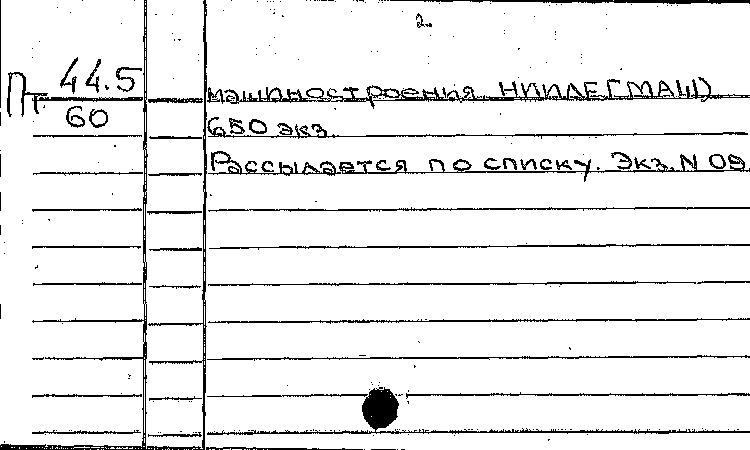 2.
Пт 44.5
60
машиностроения НИИЛЕГМАШ)
650 экз.
Рассылается по списку. Экз. N 09